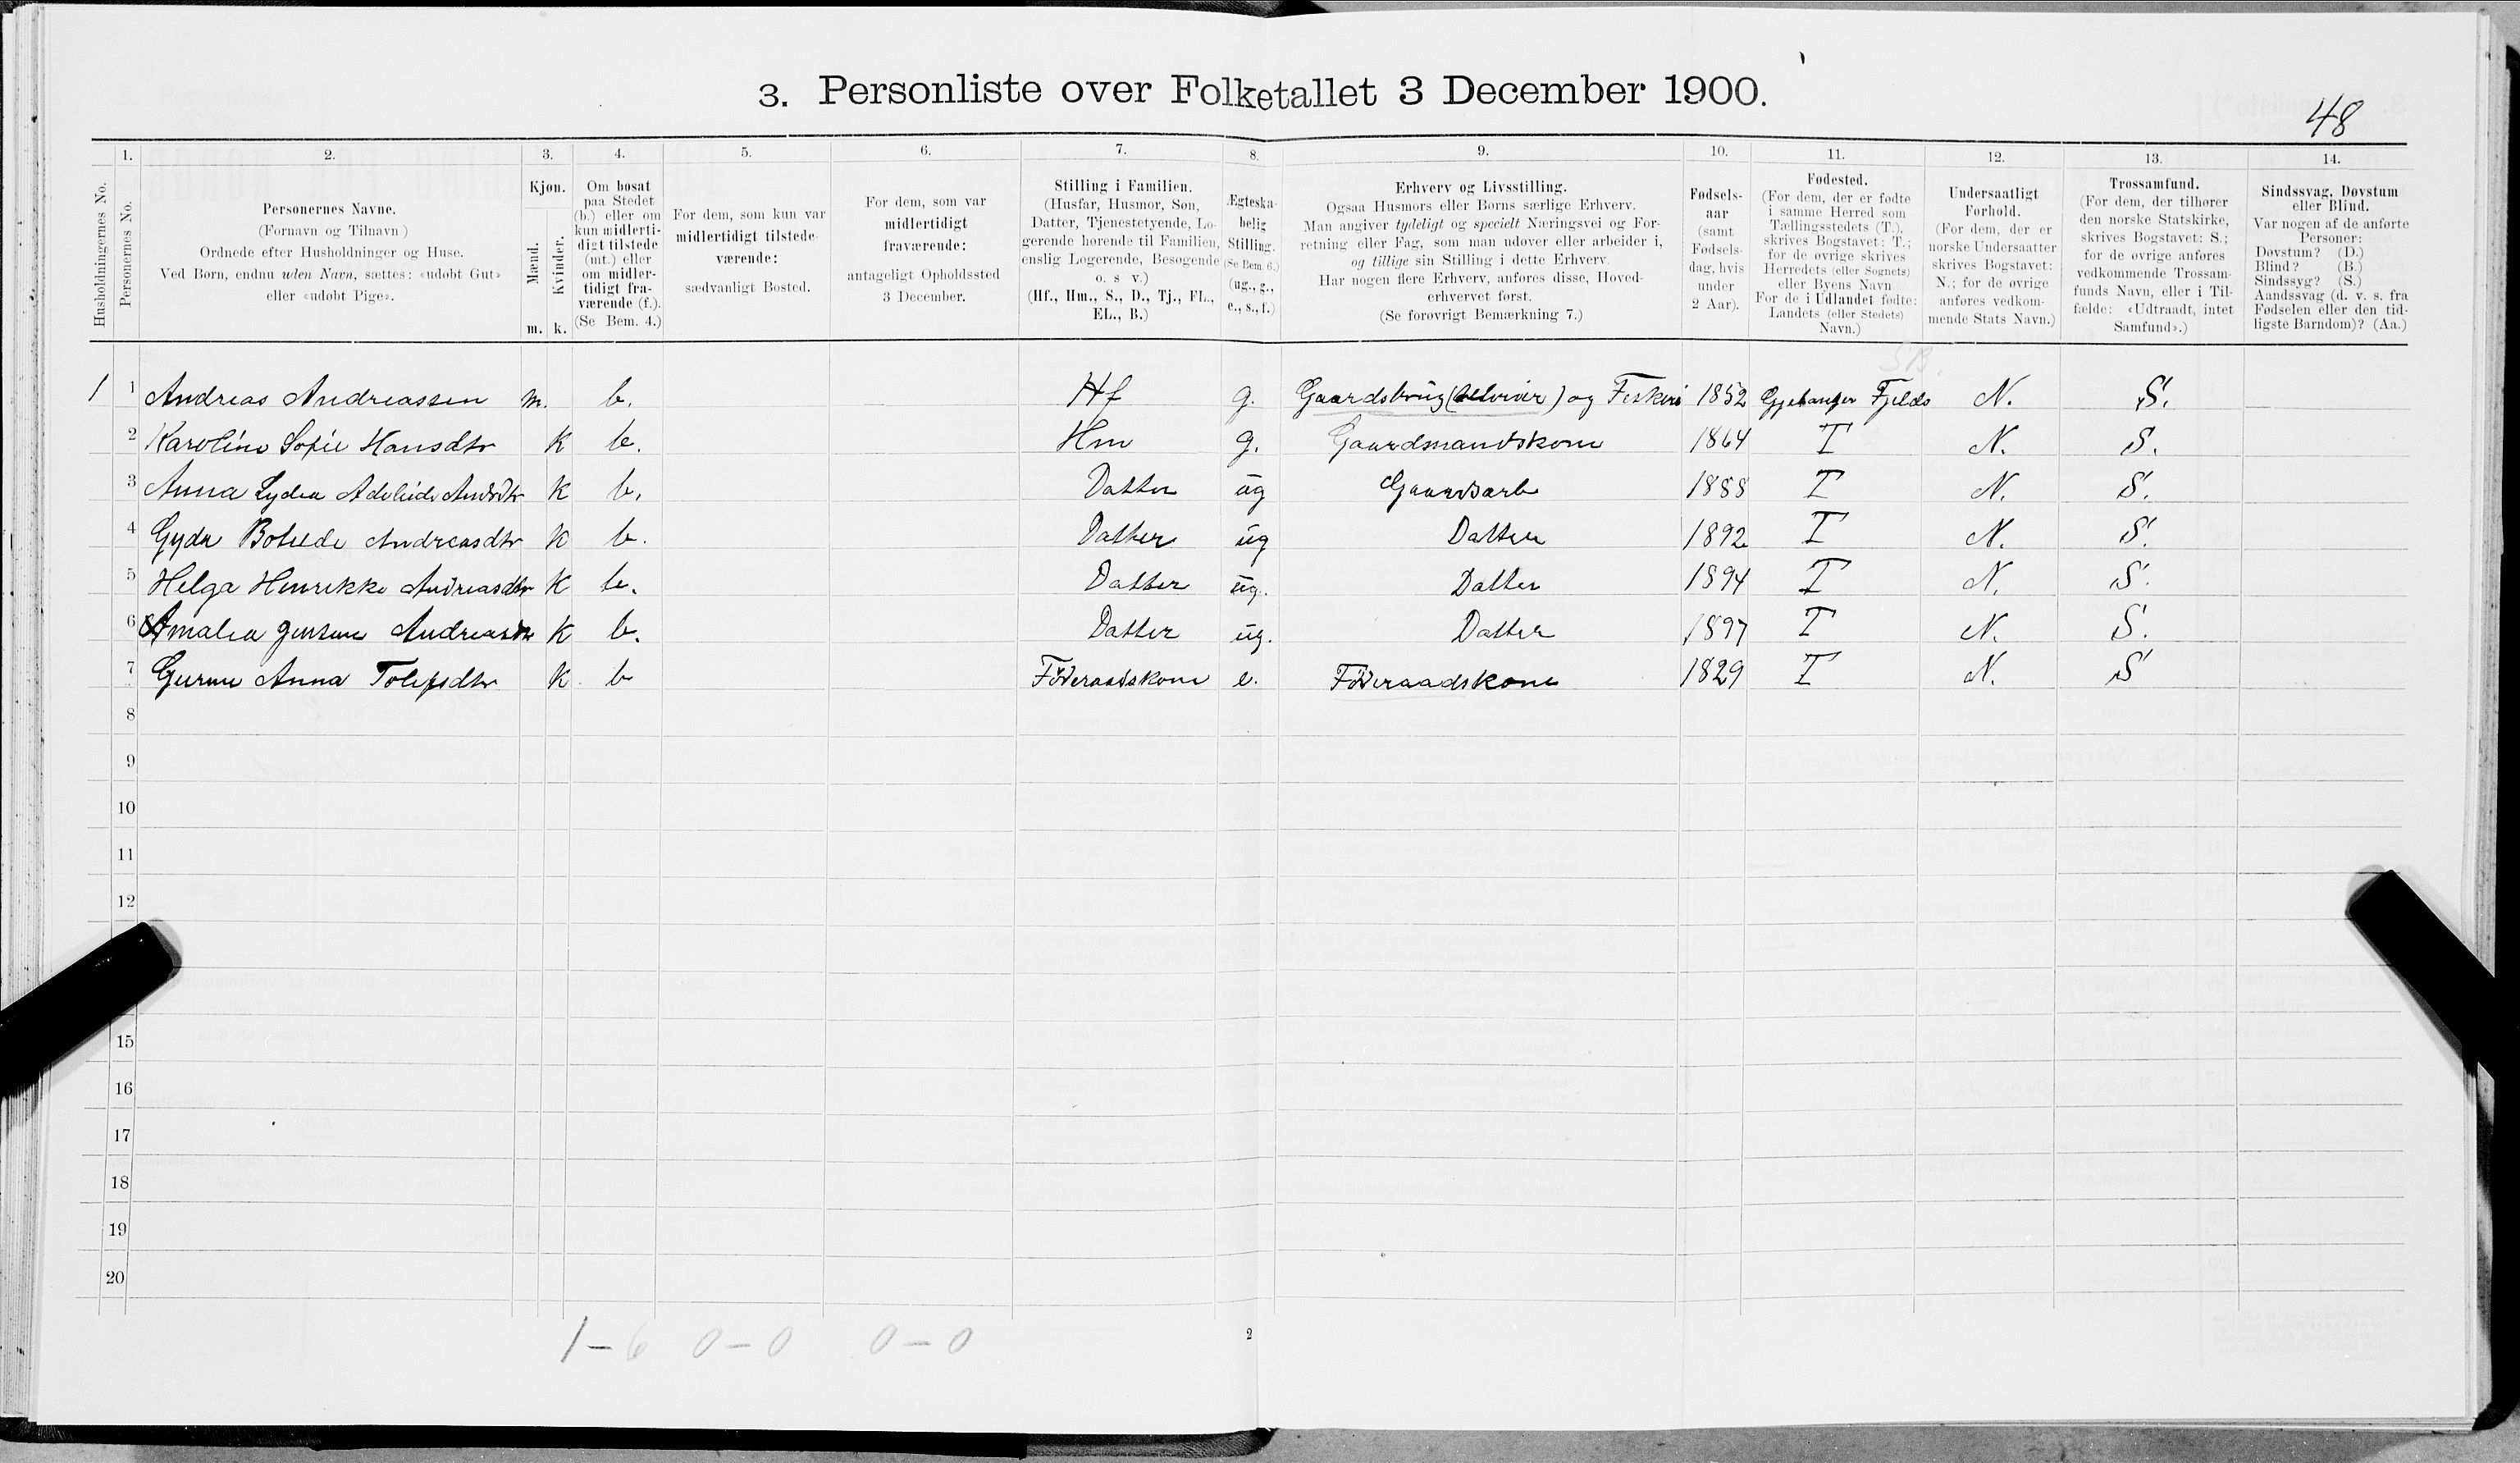 3. Personliste over Folketallet 3 December 1900.
48
Husholdningernes No.
1.
Personernes No.
2.
Personernes Navne.
(Fornavn og Tilnavn )
Ordnede efter Husholdninger og Huse.
Ved Børn, endnu uden Navn, sættes: «udøbt Gut»
eller «udøbt Pige».
3.
Kjøn.
Mænd.
Kvinder.
m. k.
4.
Om bosat
paa Stedet
(b.) eller om
kun midlerti-
digt tilstede
(mt.) eller
om midler-
tidigt fra-
værende (f.).
(Se Bem. 4.)
5.
For dem, som kun var
midlertidigt tilstede-
værende:
sædvanligt Bosted.
6.
For dem, som var
midlertidigt
fraværende:
antageligt Opholdssted
3 December.
7.
Stilling i Familien.
(Husfar, Husmor, Søn,
Datter, Tjenestetyende, Lo-
gerende hørende til Familien,
enslig Logerende, Besøgende
o. s v.)
(Hf., Hm., S., D., Tj., FL.,
EL., B.)
8.
Ægteska-
belig
Stilling.
(Se Bem. 6.)
(ug., g.,
e., s., f.)
9.
Erhverv og Livsstilling.
Ogsaa Husmors eller Børns særlige Erhverv.
Man angiver tydeligt og specielt Næringsvei og For-
retning eller Fag, som man udøver eller arbeider i,
og tillige sin Stilling i dette Erhverv.
Har nogen flere Erhverv, anføres disse, Hoved-
erhvervet først.
(Se forøvrigt Bemærkning 7.)
10.
Fødsels-
aar
(samt
Fødsels-
dag, hvis
under
2 Aar).
11.
Fødested.
(For dem, der er fødte
i samme Herred som
Tællingsstedets (T.),
skrives Bogstavet: T.;
for de øvrige skrives
Herredets (eller Sognets)
eller Byens Navn
For de i Udlandet fødte:
Landets (eller Stedets)
Navn.)
12.
Undersaatligt
Forhold.
(For dem, der er
norske Undersaatter
skrives Bogstavet:
N.; for de øvrige
anføres vedkom-
mende Stats Navn.)
13.
Trossamfund.
(For dem, der tilhører
den norske Statskirke,
skrives Bogstavet: S.;
for de øvrige anføres
vedkommende Trossam-
funds Navn, eller i Til-
fælde: «Udtraadt, intet
Samfund».)
14.
Sindssvag, Døvstum
eller Blind.
Var nogen af de anførte
Personer:
Døvstum? (D.)
Blind? (B.)
Sindssyg? (S.)
Aandssvag (d. v. s. fra
Fødselen eller den tid-
ligste Barndom)? (Aa.)
1 1 Andreas Andreassen m. b. Hf g. Gaardsbrug (selveier) og Fiskeri 1852 Fjelds N. S.
2 Karoline Sofie Hansdtr K b. Hm g. Gaardmandskone 1864 T N. S.
3 Anna Lydia Adeleide Andrdtr K b. Datter ug Gaardsarb 1888 T N. S.
4 Gyda Andreasdtr K b. Datter ug Datter 1892 T N. S.
5 Helga Henrikke Andreasdtr K b. Datter ug. Datter 1894 T N. S.
6 Amalia Andreasdtr K b. Datter ug. Datter 1897 T N. S.
7 Anna K. b Føderaadskone e. Føderaadskone 1829 T N. S
8
9
10
11
12
15
16
17
18
19
20
1 – 6 0 – 0 0 – 0
2